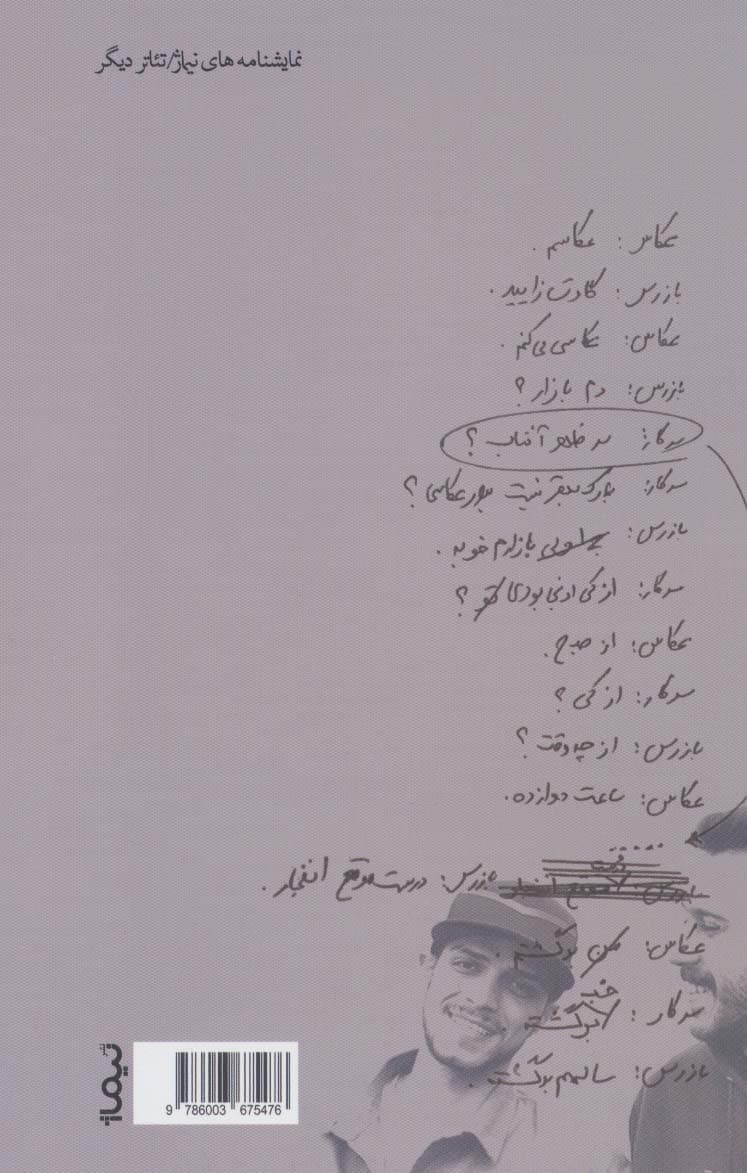 نمایشنامه های نیماژ/تئاتر دیگر
عکاس: عکاسم.
بازرس: گاوت زایید.
عکاس: عکاسی می‌کنم.
بازرس: دم بازار؟
سرکار: سر ظهر آفتاب؟
سرکار: پارک بهتر نیست برای عکاسی؟
بازرس: بازارم خوبه.
سرکار: از کی اونجا بودی؟
عکاس: از صبح.
سرکار: از کی؟
بازرس: از چه وقت؟
عکاس: ساعت دوازده.
......
بازرس: درست موقع انفجار.
عکاس: من برگشتم.
سرکار: خب برگشته.
بازرس: سالمم برگشته.
نشر نیماژ
9 786003 675476